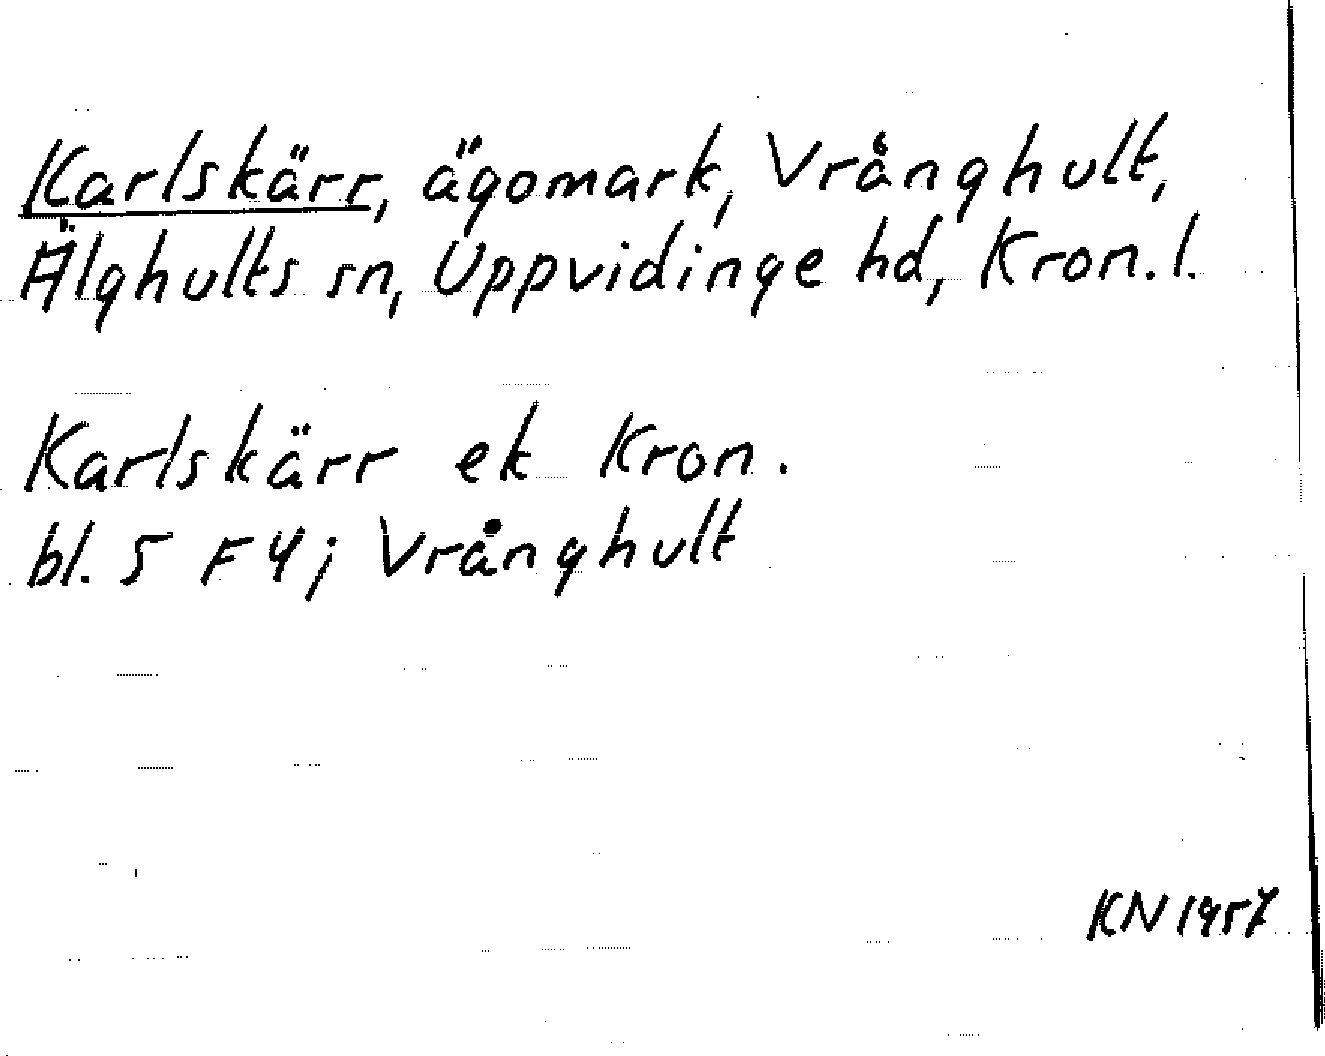 Karlskärr, ägomark, Vrånghult,
Älghults sn, Uppvidinge hd, Kron. l.
Karlskärr ek Kron.
bl. 5 F4; Vrånghult
KN 1957